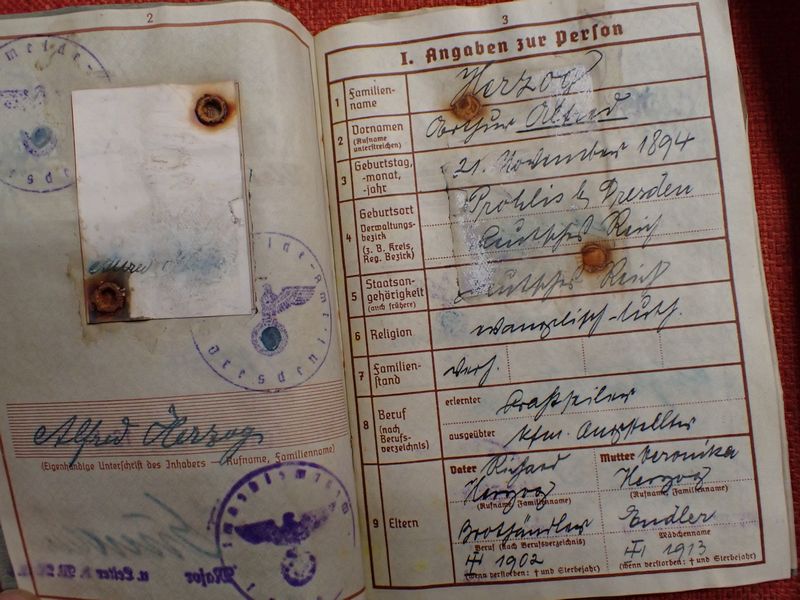 2
Alfred Herzog
(Eigenhändige Unterschrift des Inhabers — Rufname, Familienname)
Major
u. Leiter d.
3
I. Angaben zur Person
1 Familienname Herzog
2 Vornamen (Rufname unterstreichen) Arthur Alfred
3 Geburtstag, -monat, -jahr 21. November 1894
4 Geburtsort Prohlis b/ Dresden
Verwaltungsbezirk (z. B. Kreis, Reg. Bezirk) Deutsches Reich
5 Staatsangehörigkeit (auch frühere) Deutsches Reich
6 Religion evangelisch-luth.
7 Familienstand verh.
8 Beruf (nach Berufsverzeichnis)
erlernter
ausgeübter kfm. Angestellter
9 Eltern
Vater Richard Herzog
(Rufname, Familienname)
Brothändler
Beruf (nach Berufsverzeichnis)
1902
(wenn verstorben: † und Sterbejahr)
Mutter Veronika Herzog
(Rufname, Familienname)
Endler
Mädchenname
1913
(wenn verstorben: † und Sterbejahr)